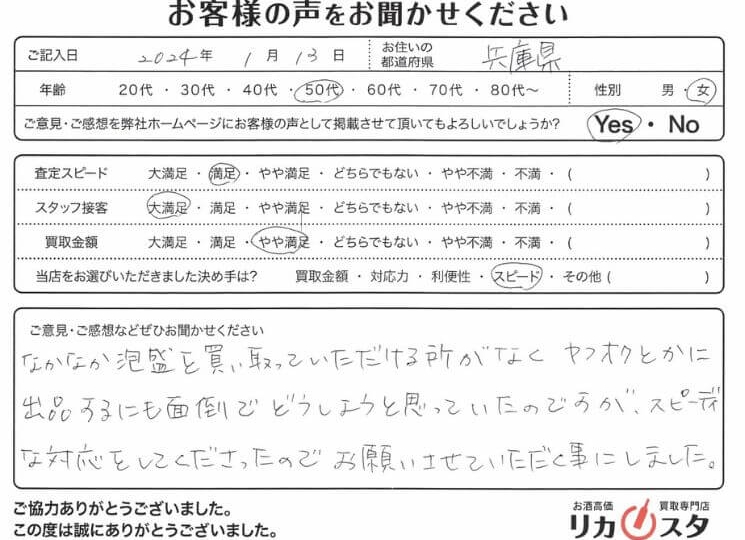 お客様の声をお聞かせください
ご記入日 2024年 1月 13日 お住いの都道府県 兵庫県
年齢 20代・30代・40代・50代・60代・70代・80代～ 性別 男・女
ご意見・ご感想を弊社ホームページにお客様の声として掲載させて頂いてもよろしいでしょうか? Yes・No
査定スピード 大満足・満足・やや満足・どちらでもない・やや不満・不満・( )
スタッフ接客 大満足・満足・やや満足・どちらでもない・やや不満・不満・( )
買取金額 大満足・満足・やや満足・どちらでもない・やや不満・不満・( )
当店をお選びいただきました決め手は? 買取金額・対応力・利便性・スピード・その他( )
ご意見・ご感想などぜひお聞かせください
なかなか泡盛を買い取っていただける所がなく ヤフオクとかに
出品するにも面倒で どうしようと思っていたのですが、スピーディ
な対応をしてくださったので お願いさせていただく事にしました。
ご協力ありがとうございました。
この度は誠にありがとうございました。
お酒高価 買取専門店
リカスタ